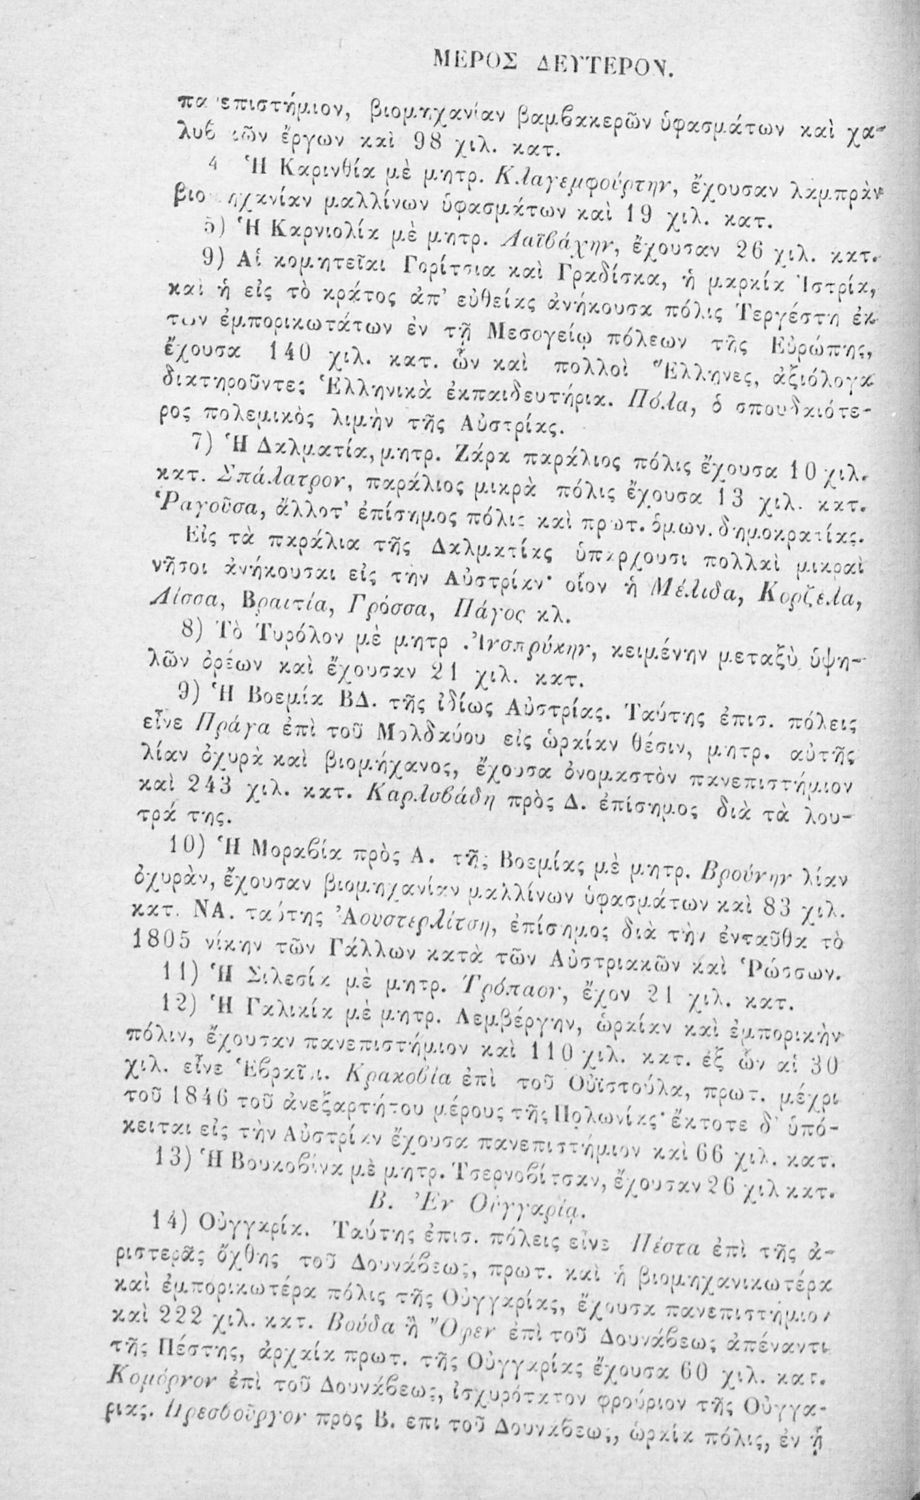 ΜΕΡΟΣ ΔΕΥΤΕΡΟΝ.
πα επιστήμιον, βιομηχανίαν βαμβακερῶν ὑφασμάτων καὶ χα-
λυβ ίῶν ἔργων καὶ 98 χιλ. κατ.
4 Ἡ Καρινθία μὲ μητρ. Κλαγεμφούρτην, ἔχουσαν λαμπρὰν
βιο ηχανίαν μαλλίνων ὑφασμάτων καὶ 19 χιλ. κατ.
5) Ἡ Καρνιολία μὲ μητρ. Λαϊβάχην, ἔχουσαν 26 χιλ. κατ.
9) Αἱ κομητεῖαι Γορίτσια καὶ Γραδίσκα, ἡ μαρκία Ἰστρία,
καὶ ἡ εἰς τὸ κράτος ἀπ' εὐθείας ἀνήκουσα πόλις Τεργέστη ἐκ
τῶν ἐμπορικωτάτων ἐν τῇ Μεσογείῳ πόλεων τῆς Εὐρώπης,
ἔχουσα 140 χιλ. κατ. ὧν καὶ πολλοὶ Ἕλληνες, ἀξιόλογα
διατηροῦντες Ἑλληνικὰ ἐκπαιδευτήρια. Πόλα, ὁ σπουδαιότε-
ρος πολεμικὸς λιμὴν τῆς Αὐστρίας.
7) Ἡ Δαλματία, μητρ. Ζάρα παράλιος πόλις ἔχουσα 10 χιλ.
κατ. Σπάλατρον, παράλιος μικρὰ πόλις ἔχουσα 13 χιλ. κατ.
Ῥαγοῦσα, ἄλλοτ' ἐπίσημος πόλις καὶ πρωτ. ὁμων. δημοκρατίας.
Εἰς τὰ παράλια τῆς Δαλματίας ὑπάρχουσι πολλαὶ μικραὶ
νῆσοι ἀνήκουσαι εἰς τὴν Αὐστρίαν· οἷον ἡ Μέλιδα, Κορζέλα,
Λίσσα, Βραιτία, Γρόσσα, Πάγος κλ.
8) Τὸ Τυρόλον μὲ μητρ. Ἰνσπρύκην, κειμένην μεταξὺ ὑψη-
λῶν ὀρέων καὶ ἔχουσαν 21 χιλ. κατ.
9) Ἡ Βοεμία ΒΔ. τῆς ἰδίως Αὐστρίας. Ταύτης ἐπισ. πόλεις
εἶνε Πράγα ἐπὶ τοῦ Μολδαύου εἰς ὡραίαν θέσιν, μητρ. αὐτῆς
λίαν ὀχυρὰ καὶ βιομήχανος, ἔχουσα ὀνομαστὸν πανεπιστήμιον
καὶ 243 χιλ. κατ. Καρλσβάδη πρὸς Δ. ἐπίσημος διὰ τὰ λου-
τρά της.
10) Ἡ Μοραβία πρὸς Α. τῆς Βοεμίας μὲ μητρ. Βρούνην λίαν
ὀχυρὰν, ἔχουσαν βιομηχανίαν μαλλίνων ὑφασμάτων καὶ 83 χιλ.
κατ. ΝΑ. ταύτης Ἀουστερλίτση, ἐπίσημος διὰ τὴν ἐνταῦθα τὸ
1805 νίκην τῶν Γάλλων κατὰ τῶν Αὐστριακῶν καὶ Ῥώσσων.
11) Ἡ Σιλεσία μὲ μητρ. Τρόπαον, ἔχον 21 χιλ. κατ.
12) Ἡ Γαλικία μὲ μητρ. Λεμβέργην, ὡραίαν καὶ ἐμπορικὴν
πόλιν, ἔχουσαν πανεπιστήμιον καὶ 110 χιλ. κατ. ἐξ ὧν αἱ 30
χιλ. εἶνε Ἑβραῖοι. Κρακοβία ἐπὶ τοῦ Οὐϊστούλα, πρωτ. μέχρι
τοῦ 1846 τοῦ ἀνεξαρτήτου μέρους τῆς Πολωνίας· ἔκτοτε δ' ὑπό-
κειται εἰς τὴν Αὐστρίαν ἔχουσα πανεπιστήμιον καὶ 66 χιλ. κατ.
13) Ἡ Βουκοβίνα μὲ μητρ. Τσερνοβίτσαν, ἔχουσαν 26 χιλ κατ.
Β. Ἐν Οὑγγαρίᾳ.
14) Οὑγγαρία. Ταύτης ἐπισ. πόλεις εἶνε Πέστα ἐπὶ τῆς ἀ-
ριστερᾶς ὄχθης τοῦ Δουνάβεως, πρωτ. καὶ ἡ βιομηχανικωτέρα
καὶ ἐμπορικωτέρα πόλις τῆς Οὑγγαρίας, ἔχουσα πανεπιστήμιον
καὶ 222 χιλ. κατ. Βούδα ἢ Ὄφεν ἐπὶ τοῦ Δουνάβεως ἀπέναντι
τῆς Πέστης, ἀρχαία πρωτ. τῆς Οὑγγαρίας ἔχουσα 60 χιλ. κατ.
Κομόρνον ἐπὶ τοῦ Δουνάβεως, ἰσχυρότατον φρούριον τῆς Οὑγγα-
ριας. Πρεσβοῦργον προς Β. επι τοῦ Δουνάβεως, ὡραία πόλις, ἐν ᾗ